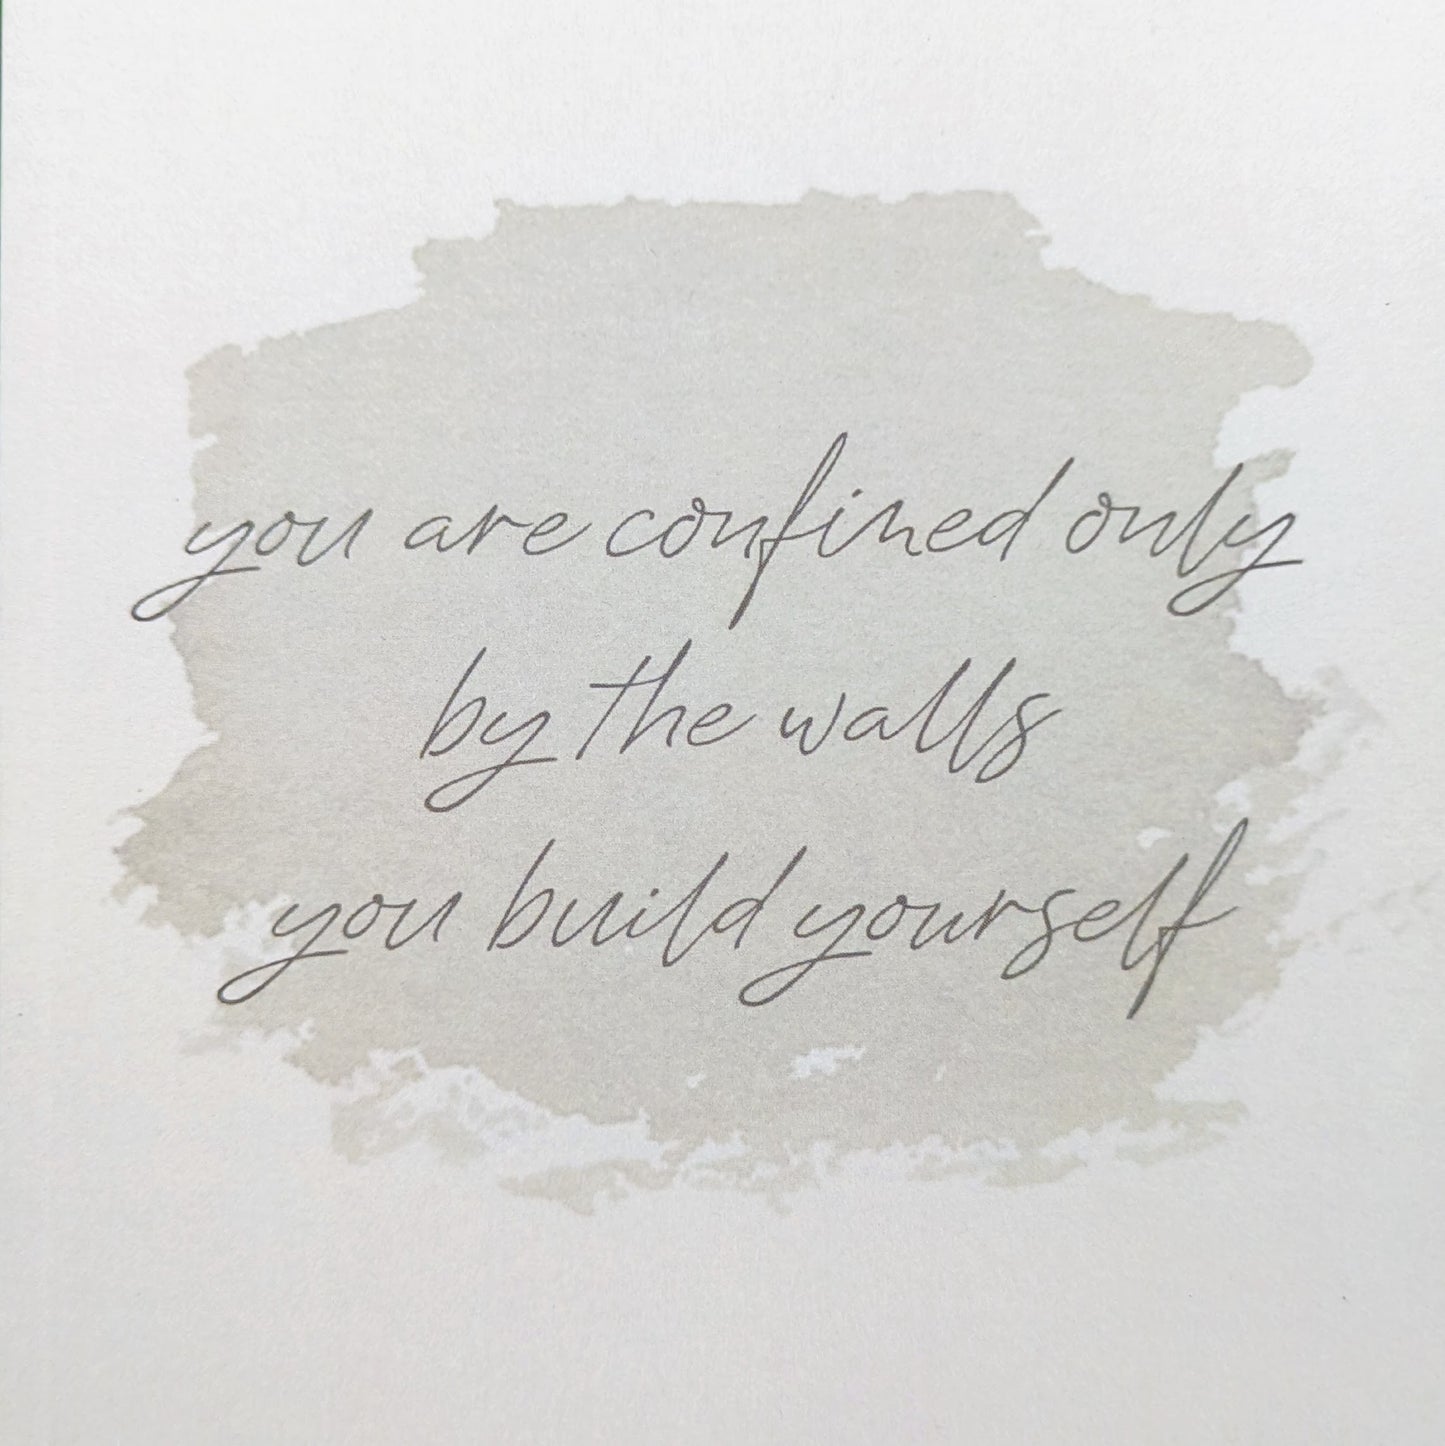 you are confined only
by the walls
you build yourself